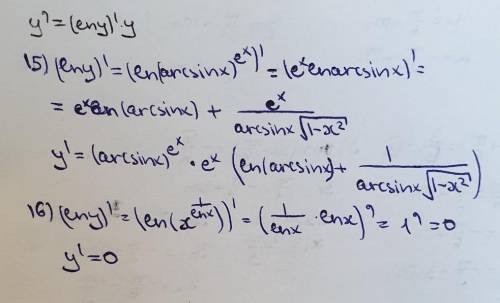 y' = (lny)'·y
15) (lny)' = (ln(arcsinx)^{e^x})' = (e^x ln arcsinx)' =
= e^x ln(arcsinx) + e^x / (arcsinx √(1-x²))
y' = (arcsinx)^{e^x} · e^x (ln(arcsinx) + 1 / (arcsinx √(1-x²)))
16) (lny)' = (ln(x^{1/lnx}))' = (1/lnx · lnx)' = 1' = 0
y' = 0